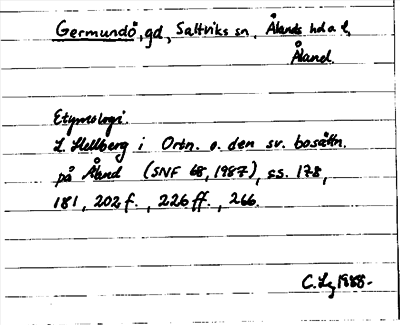 Germundö, gd, Saltviks sn, Ålands hd a l,
Åland.
Etymologi.
L. Hellberg i Ortn. o. den sv. bosättn.
på Åland (SNF 68, 1987), ss. 178,
181, 202 f., 226 ff., 266.
C. Lg 1988-